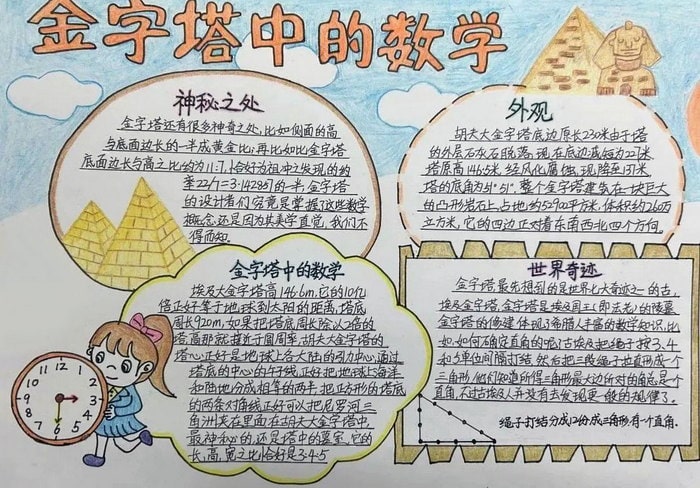 金字塔中的数学
神秘之处
金字塔还有很多神奇之处,比如侧面的高
与底面边长的一半成黄金比;再比如比金字塔
底面边长与高之比约为11:7,恰好为祖冲之发现的约
率22/7=3.142857的一半,金字塔
的设计者们究竟是掌握了这些数学
概念还是因为其美学直觉,我们不
得而知。
外观
胡夫大金字塔底边原长230米由于塔
的外层石灰石脱落,现在底边减短为227米
塔原高146.5米,经风化腐蚀,现降至137米
塔的底角为51°51′.整个金字塔建筑在一块巨大
的凸形岩石上,占地约52900平方米,体积约260万
立方米,它的四边正对着东南西北四个方向。
金字塔中的数学
埃及大金字塔高146.6m,它的10亿
倍正好等于地球到太阳的距离,塔底
周长920m,如果把塔底周长除以2倍的
塔高那就接近于圆周率,胡夫大金字塔的
塔心正好是地球上各大陆的引力中心,通过
塔底的中心的午线正好把地球上海洋
和陆地分成相等的两半,把正方形的塔底
的两条对角线正好可以把尼罗河三
角洲夹在里面在胡夫大金字塔中,
最神秘的,还是塔中的墓室,它的
长,高,宽之比恰好是3:4:5
世界奇迹
金字塔最先想到的是世界七大奇迹之一的古,
埃及金字塔,金字塔是埃及国王(即法老)的陵墓
金字塔的修建体现了希腊人丰富的数学知识,比
如,如何确定直角的呢?古埃及把绳子按3.4
和5单位间隔打结,然后把三段绳子也直形成一个
三角形,他们知道所得三角形最大边所对的角总是个
直角,不过古埃及人并没有去发现更一般的规律了。
绳子打结分成12份,成三角形有一个直角.
12
1
2
3
4
5
6
7
8
9
10
11